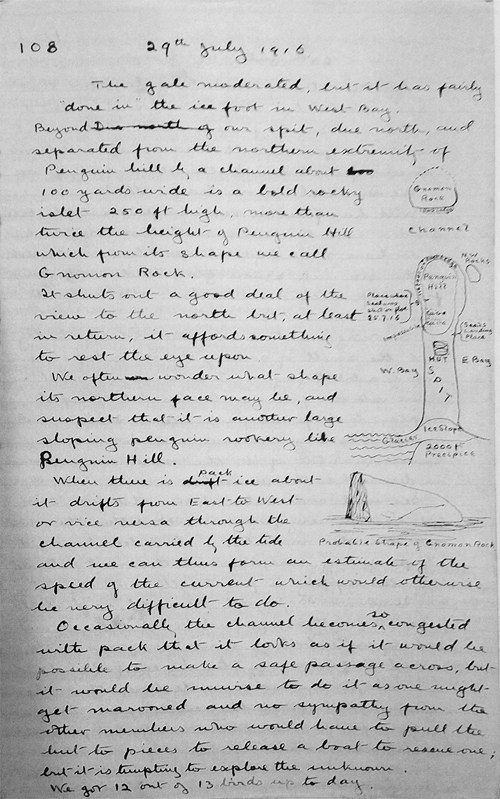 108 29th July 1916
The gale moderated, but it has fairly
"done in" the ice foot in West Bay.
Beyond Due north of our spit, due north, and
separated from the northern extremity of
Penguin hill by a channel about 100
100 yards wide is a bold rocky
islet 250 ft high, more than
twice the height of Penguin Hill
which from its shape we call
Gnomon Rock.
It shuts out a good deal of the
view to the north but, at least
in return, it affords something
to rest the eye upon
We often wonder what shape
its northern face may be, and
suspect that it is another large
sloping penguin rookery like
Penguin Hill.
When there is drift pack ice about
it drifts from East to West
or vice versa through the
channel carried by the tide
and we can thus form an estimate of the
speed of the current which would otherwise
be very difficult to do.
Occasionally the channel becomes so congested
with pack that it looks as if it would be
possible to make a safe passage across, but
it would be unwise to do it as one might
get marooned and no sympathy from the
other members who would have to pull the
hut to pieces to release a boat to rescue one;
but it is tempting to explore the unknown.
We got 12 out of 13 birds up to day.
Gnomon
Rock
Channel
N.W.
Rocks
Penguin
Hill
Place where
Sealion was
shot on floe
Impassable
Cave
Seals
Landing
Place
HUT
W. Bay
E. Bay
SPIT
Ice Slope
Glacier
2000 ft
Precipice
Probable Shape of Gnomon Rock